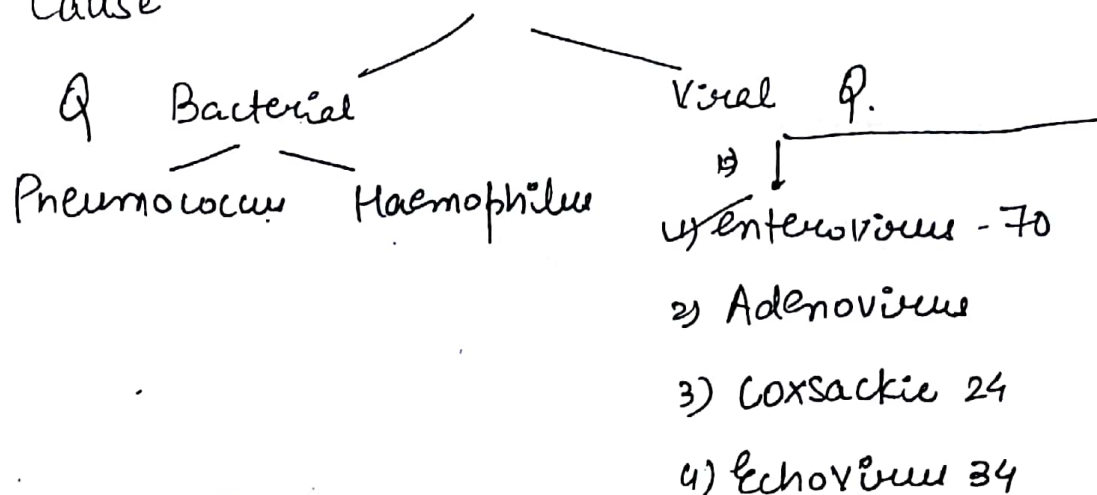 Cause
Q Bacterial Viral Q.
Pneumococcus Haemophilus
1) enterovirus - 70
2) Adenovirus
3) Coxsackie 24
4) Echovirus 34